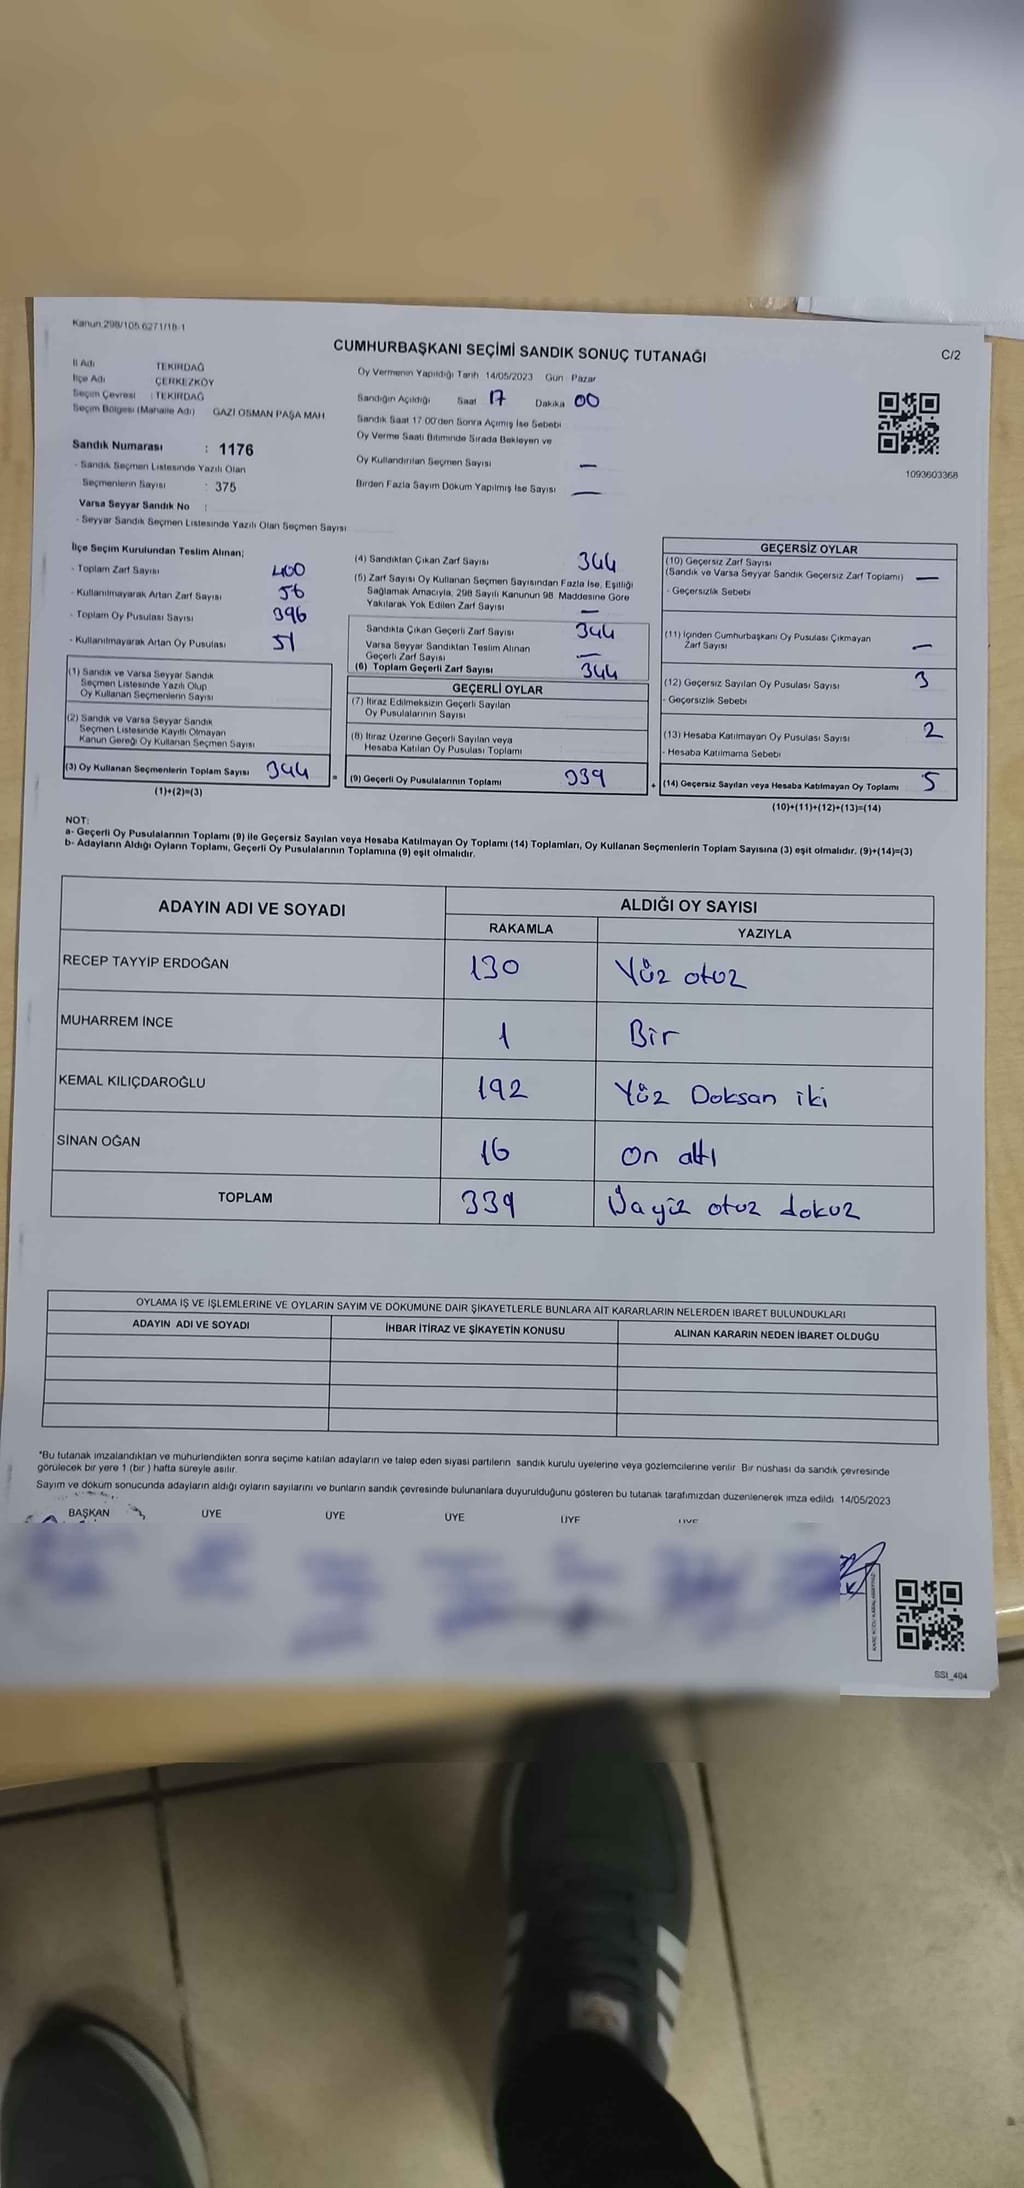 Kanun:298/105.6271/18-1
CUMHURBAŞKANI SEÇİMİ SANDIK SONUÇ TUTANAĞI
C/2
İl Adı TEKİRDAĞ
İlçe Adı ÇERKEZKÖY
Seçim Çevresi : TEKİRDAĞ
Seçim Bölgesi (Mahalle Adı) GAZİ OSMAN PAŞA MAH
Oy Vermenin Yapıldığı Tarih 14/05/2023 Gün Pazar
Sandığın Açıldığı Saat 17 Dakika 00
Sandık Saat 17 00'den Sonra Açımış İse Sebebi
Oy Verme Saati Bitiminde Sırada Bekleyen ve
Oy Kullandırılan Seçmen Sayısı —
Birden Fazla Sayım Döküm Yapılmış İse Sayısı —
1093603368
Sandık Numarası : 1176
- Sandık Seçmen Listesinde Yazılı Olan
Seçmenlerin Sayısı : 375
Varsa Seyyar Sandık No :
- Seyyar Sandık Seçmen Listesinde Yazılı Olan Seçmen Sayısı
İlçe Seçim Kurulundan Teslim Alınan;
- Toplam Zarf Sayısı 400
- Kullanılmayarak Artan Zarf Sayısı 56
- Toplam Oy Pusulası Sayısı 396
- Kullanılmayarak Artan Oy Pusulası 51
(1) Sandık ve Varsa Seyyar Sandık
Seçmen Listesinde Yazılı Olup
Oy Kullanan Seçmenlerin Sayısı
(2) Sandık ve Varsa Seyyar Sandık
Seçmen Listesinde Kayıtlı Olmayan
Kanun Gereği Oy Kullanan Seçmen Sayısı
(3) Oy Kullanan Seçmenlerin Toplam Sayısı 344
(1)+(2)=(3)
(4) Sandıktan Çıkan Zarf Sayısı 344
(5) Zarf Sayısı Oy Kullanan Seçmen Sayısından Fazla İse, Eşitliği
Sağlamak Amacıyla, 298 Sayılı Kanunun 98. Maddesine Göre
Yakılarak Yok Edilen Zarf Sayısı —
Sandıkta Çıkan Geçerli Zarf Sayısı 344
Varsa Seyyar Sandıktan Teslim Alınan
Geçerli Zarf Sayısı —
(6) Toplam Geçerli Zarf Sayısı 344
GEÇERLİ OYLAR
(7) İtiraz Edilmeksizin Geçerli Sayılan
Oy Pusulalarının Sayısı
(8) İtiraz Üzerine Geçerli Sayılan veya
Hesaba Katılan Oy Pusulası Toplamı
= (9) Geçerli Oy Pusulalarının Toplamı 339
GEÇERSİZ OYLAR
(10) Geçersiz Zarf Sayısı
(Sandık ve Varsa Seyyar Sandık Geçersiz Zarf Toplamı) —
- Geçersizlik Sebebi
(11) İçinden Cumhurbaşkanı Oy Pusulası Çıkmayan
Zarf Sayısı —
(12) Geçersiz Sayılan Oy Pusulası Sayısı 3
- Geçersizlik Sebebi
(13) Hesaba Katılmayan Oy Pusulası Sayısı 2
- Hesaba Katılmama Sebebi
+ (14) Geçersiz Sayılan veya Hesaba Katılmayan Oy Toplamı 5
(10)+(11)+(12)+(13)=(14)
NOT:
a- Geçerli Oy Pusulalarının Toplamı (9) ile Geçersiz Sayılan veya Hesaba Katılmayan Oy Toplamı (14) Toplamları, Oy Kullanan Seçmenlerin Toplam Sayısına (3) eşit olmalıdır. (9)+(14)=(3)
b- Adayların Aldığı Oyların Toplamı, Geçerli Oy Pusulalarının Toplamına (9) eşit olmalıdır.
ADAYIN ADI VE SOYADI
ALDIĞI OY SAYISI
RAKAMLA YAZIYLA
RECEP TAYYİP ERDOĞAN 130 Yüz otuz
MUHARREM İNCE 1 Bir
KEMAL KILIÇDAROĞLU 192 Yüz Doksan iki
SİNAN OĞAN 16 on altı
TOPLAM 339 Üçyüz otuz dokuz
OYLAMA İŞ VE İŞLEMLERİNE VE OYLARIN SAYIM VE DÖKÜMÜNE DAİR ŞİKAYETLERLE BUNLARA AİT KARARLARIN NELERDEN İBARET BULUNDUKLARI
ADAYIN ADI VE SOYADI İHBAR İTİRAZ VE ŞİKAYETİN KONUSU ALINAN KARARIN NEDEN İBARET OLDUĞU
*Bu tutanak imzalandıktan ve mühürlendikten sonra seçime katılan adayların ve talep eden siyasi partilerin sandık kurulu üyelerine veya gözlemcilerine verilir. Bir nüshası da sandık çevresinde
görülecek bir yere 1 (bir ) hafta süreyle asılır.
Sayım ve döküm sonucunda adayların aldığı oyların sayılarını ve bunların sandık çevresinde bulunanlara duyurulduğunu gösteren bu tutanak tarafımızdan düzenlenerek imza edildi. 14/05/2023
BAŞKAN ÜYE ÜYE ÜYE ÜYE ÜYE
SSI_404